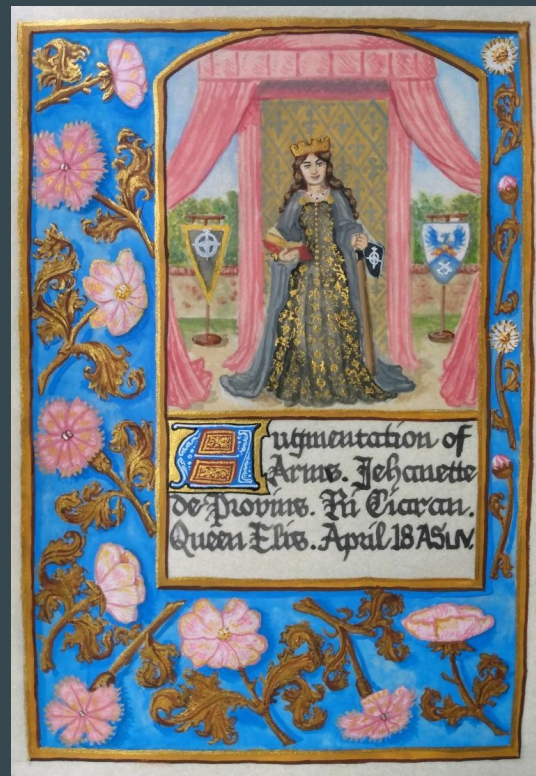 Augmentation of
Arms. Jehanette
de Provins. Ri Ciaran.
Queen Elis. April 18 ASLIV.